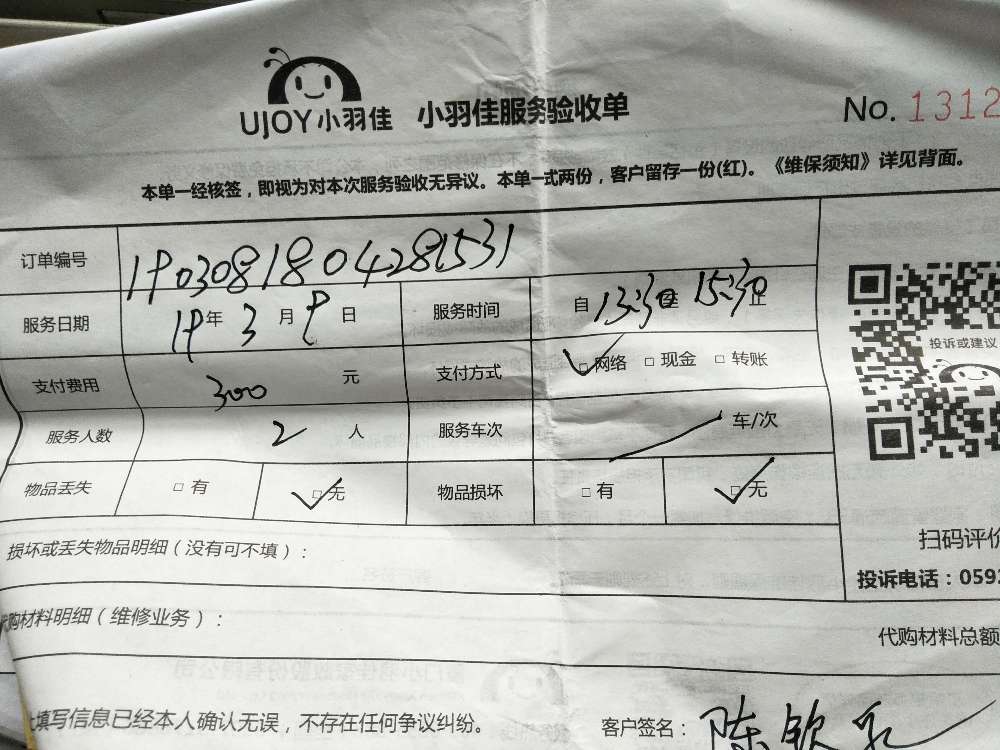 UJOY小羽佳 小羽佳服务验收单 No. 1312
本单一经核签，即视为对本次服务验收无异议。本单一式两份，客户留存一份(红)。《维保须知》详见背面。
订单编号 19030818042281531
服务日期 19年3月9日 服务时间 自13:30至15:30止
支付费用 300 元 支付方式 ☑网络 □现金 □转账
服务人数 2 人 服务车次 车/次
物品丢失 □有 ☑无 物品损坏 □有 ☑无
投诉或建议
扫码评价
损坏或丢失物品明细（没有可不填）：
投诉电话：0592
代购材料明细（维修业务）：
代购材料总额
填写信息已经本人确认无误，不存在任何争议纠纷。 客户签名：陈欽